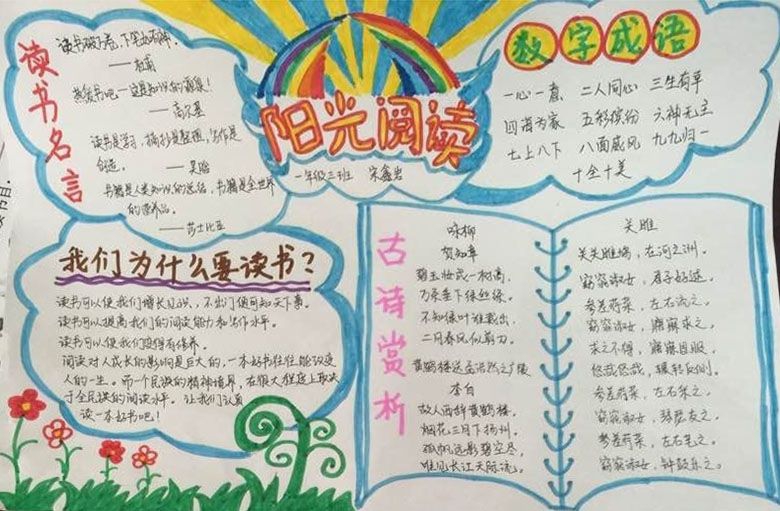 读书名言
读书破万卷,下笔如有神。
——杜甫
热爱书吧——这是知识的源泉!
——高尔基
读书是学习,摘抄是整理,写作是
创造。 ——吴晗
书籍是人类知识的总结,书籍是全世界
的营养品。
——莎士比亚
阳光阅读
一年级三班 宋鑫岩
数字成语
一心一意 二人同心 三生有幸
四海为家 五彩缤纷 六神无主
七上八下 八面威风 九九归一
十全十美
我们为什么要读书?
读书可以使我们增长见识,不出门便可知天下事。
读书可以提高我们的阅读能力和写作水平。
读书可以使我们变得有修养。
阅读对人成长的影响是巨大的,一本好书往往能改变
人的一生。而一个民族的精神境界,在很大程度上取决
于全民族的阅读水平。让我们认真
读一本好书吧!
古诗赏析
咏柳
贺知章
碧玉妆成一树高,
万条垂下绿丝绦。
不知细叶谁裁出,
二月春风似剪刀。
黄鹤楼送孟浩然之广陵
李白
故人西辞黄鹤楼,
烟花三月下扬州。
孤帆远影碧空尽,
唯见长江天际流。
关雎
关关雎鸠,在河之洲。
窈窕淑女,君子好逑。
参差荇菜,左右流之。
窈窕淑女,寤寐求之。
求之不得,寤寐思服。
悠哉悠哉,辗转反侧。
参差荇菜,左右采之。
窈窕淑女,琴瑟友之。
参差荇菜,左右芼之。
窈窕淑女,钟鼓乐之。